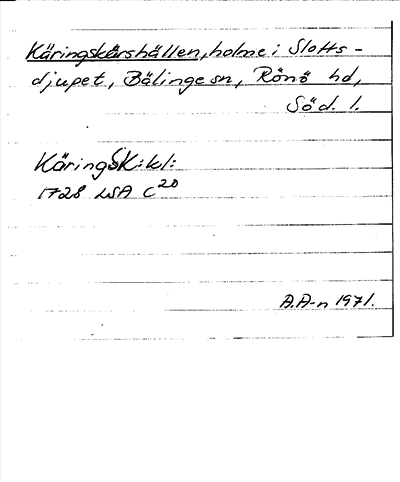 Käringskärshällen, holme i Slotts-
djupet, Bälinge sn, Rönö hd,
Söd. l.
KäringSK:kl:
1728 LSA C 20
A.A-n 1971.